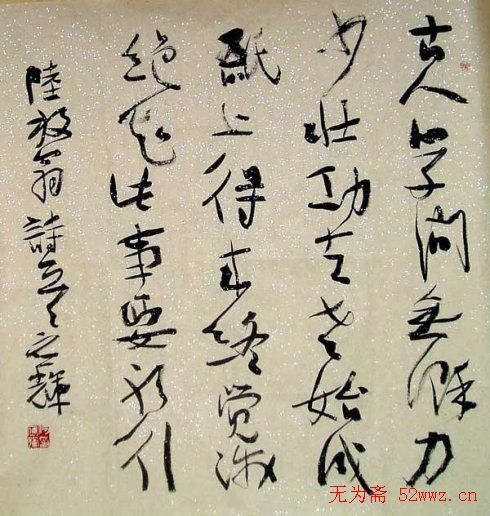 古人学问无遗力
少壮功夫老始成
纸上得来终觉浅
绝知此事要躬行
陸放翁詩之輝
无为斋 52wwz.cn